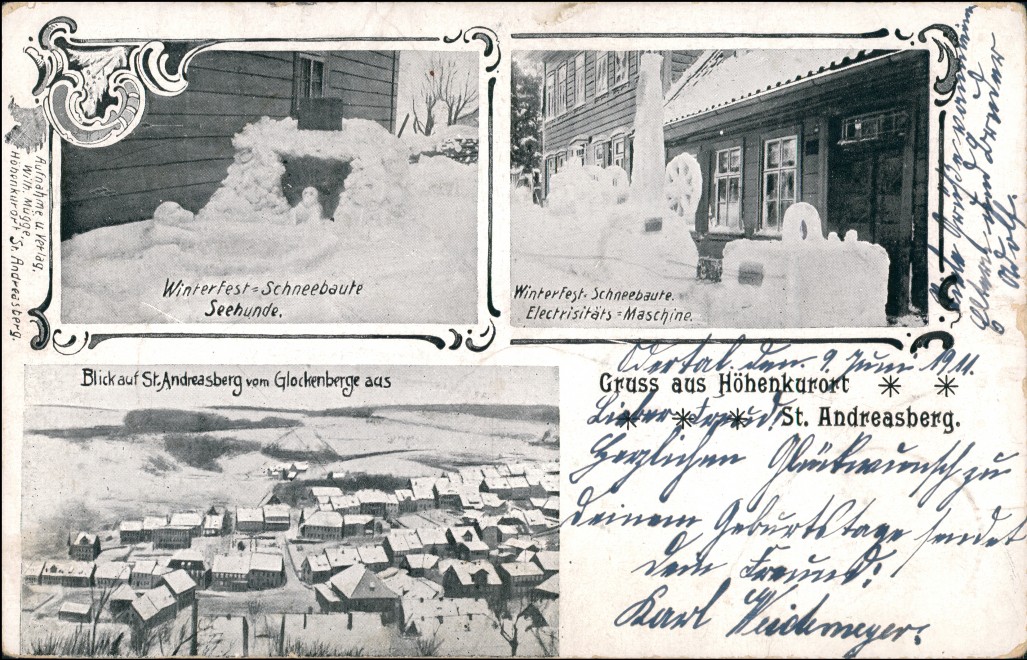 Aufnahme u. Verlag.
Wilh. Mügge,
Höhenkurort St. Andreasberg.
Winterfest=Schneebaute
Seehunde.
Winterfest=Schneebaute.
Electrisitäts=Maschine.
Blick auf St. Andreasberg vom Glockenberge aus
Gruss aus Höhenkurort
St. Andreasberg.
Odertal. den. 9. Juni 1911.
Lieber Freund!
Herzlichen Glückwunsch zu
deinem Geburtstage sendet
dein Freund!
Karl
Grüße an
Eltern und Bruder
Adolf.